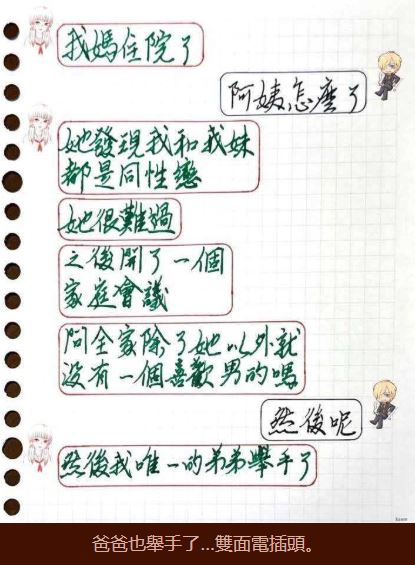 我媽住院了
阿姨怎麼了
她發現我和我妹
都是同性戀
她很難過
之後開了一個
家庭會議
問全家除了她以外就
沒有一個喜歡男的嗎
然後呢
然後我唯一的弟弟舉手了
爸爸也舉手了...雙面電插頭。